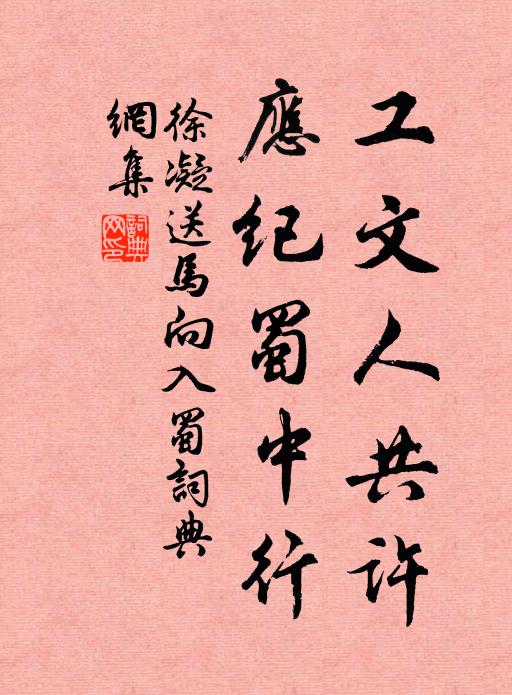 工文人共許
應紀蜀中行
徐凝送馬向入蜀詞典
網集
詞典
网印